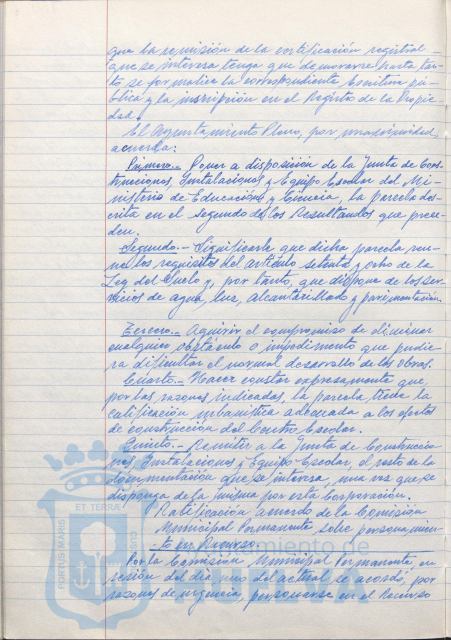 que la remisión de la certificación registral
que se interesa tenga que demorarse hasta tan-
to se formalice la correspondiente Escritura pú-
blica y la inscripción en el Registro de la Propie-
dad.
El Ayuntamiento Pleno, por unanimidad,
acuerda:
Primero.- Poner a disposición de la Junta de Cons-
trucciones, Instalaciones y Equipo Escolar del Mi-
nisterio de Educación y Ciencia, la parcela des-
crita en el segundo de los Resultandos que prece-
den.
Segundo.- Significarle que dicha parcela reu-
ne los requisitos del artículo setenta y ocho de la
Ley del Suelo y, por tanto, que dispone de los ser-
vicios de agua, luz, alcantarillado y pavimentación.
Tercero.- Adquirir el compromiso de eliminar
cualquier obstáculo o impedimento que pudie-
ra dificultar el normal desarrollo de las obras.
Cuarto.- Hacer constar expresamente que,
por las razones indicadas, la parcela tiene la
calificación urbanística adecuada a los efectos
de construcción del Centro Escolar.
Quinto.- Remitir a la Junta de Construccio-
nes, Instalaciones y Equipo Escolar, el resto de la
documentación que se interesa, una vez que se
disponga de la misma por esta Corporación.
Ratificación acuerdo de la Comisión
Municipal Permanente sobre personamien-
to en Recurso.
Por la Comisión Municipal Permanente, en
sesión del día uno del actual se acordó, por
razones de urgencia, personarse en el Recurso
PORTUS MARIS ET TERRAE
Ayuntamiento de